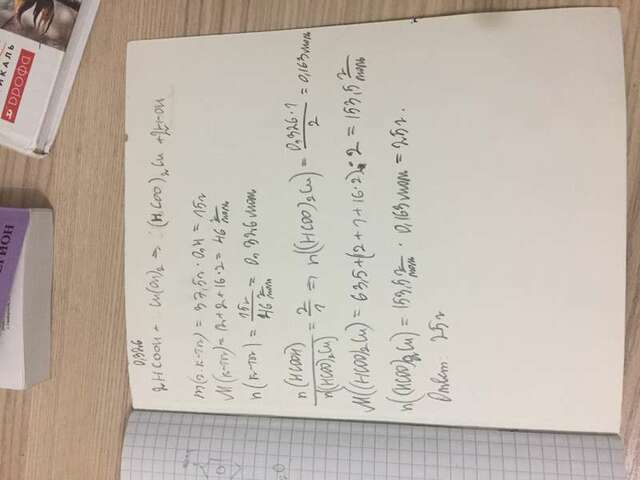 РЕГИОН
ДРОФА
0,326
2HCOOH + Cu(OH)₂ => (HCOO)₂Cu + 2H-OH
m(г. к-ты) = 37,5г · 0,4 = 15г
M(к-ты) = 12+2+16·2 = 46 г/моль
n(к-ты) = 15г / 46 г/моль = 0,326 моль
n(HCOOH) / n((HCOO)₂Cu) = 2/1 => n((HCOO)₂Cu) = 0,326·1 / 2 = 0,163 моль
M((HCOO)₂Cu) = 63,5+(12+1+16·2)·2 = 153,5 г/моль
n((HCOO)₂Cu) = 153,5 г/моль · 0,163 моль = 25г.
Ответ: 25г